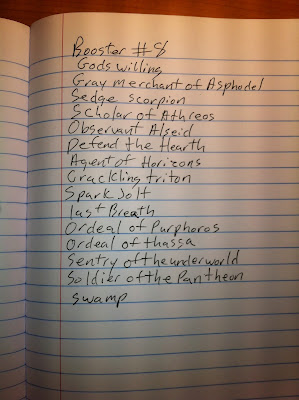 Booster #8
Gods willing
Gray merchant of Asphodel
Sedge scorpion
Scholar of Athreos
Observant Alseid
Defend the Hearth
Agent of Horizons
Crackling triton
Spark Jolt
last Breath
Ordeal of Purphoros
Ordeal of thassa
Sentry of the underworld
Soldier of the Pantheon
swamp